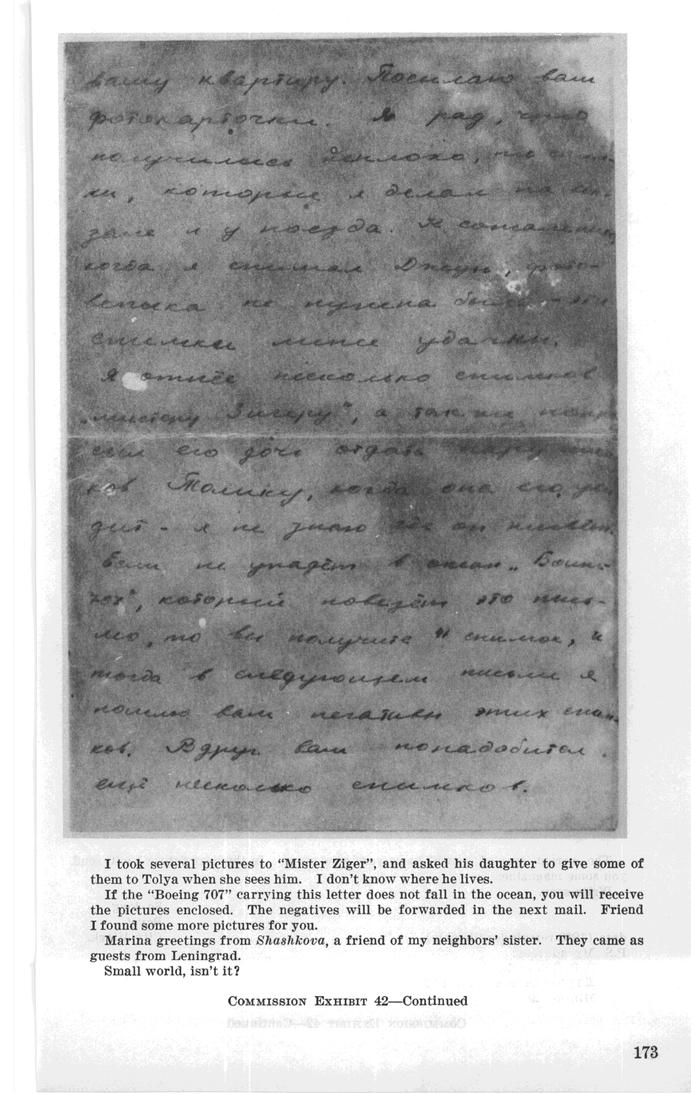 вашу квартиру. Посылаю вам
фотокарточки. Я рад, что
получились неплохо,
которые я делал на
и у поезда. К сожалению
когда я снимал фото-
вспышка не нужна была - эти
снимки менее удачны.
Я отнёс несколько снимков
„мистеру Зигеру", а также попро-
сил его дочь отдать
ков Толику, когда она его уви
дит - я не знаю где он живёт.
Если не упадёт в океан „Боинг-
707", который повезёт это пись-
мо, то вы получите снимок, и
тогда в следующем письме я
пошлю вам негативы этих сним
ков. Вдруг вам понадобится
ещё несколько снимков.
I took several pictures to “Mister Ziger”, and asked his daughter to give some of
them to Tolya when she sees him. I don't know where he lives.
If the “Boeing 707” carrying this letter does not fall in the ocean, you will receive
the pictures enclosed. The negatives will be forwarded in the next mail. Friend
I found some more pictures for you.
Marina greetings from Shashkova, a friend of my neighbors' sister. They came as
guests from Leningrad.
Small world, isn't it?
COMMISSION EXHIBIT 42—Continued
173